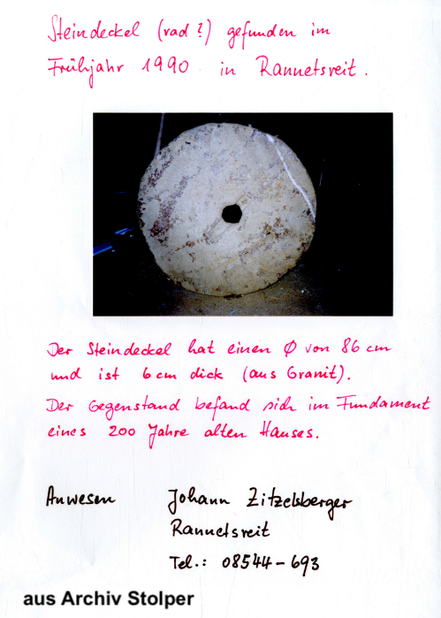 Steindeckel (rad?) gefunden im
Frühjahr 1990 in Rannetsreit.
Der Steindeckel hat einen Ø von 86 cm
und ist 6 cm dick (aus Granit).
Der Gegenstand befand sich im Fundament
eines 200 Jahre alten Hauses.
Anwesen Johann Zitzelsberger
Rannetsreit
Tel.: 08544-693
aus Archiv Stolper